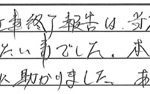 事終了報告は、
たい事でした。本
に助かりました。あ